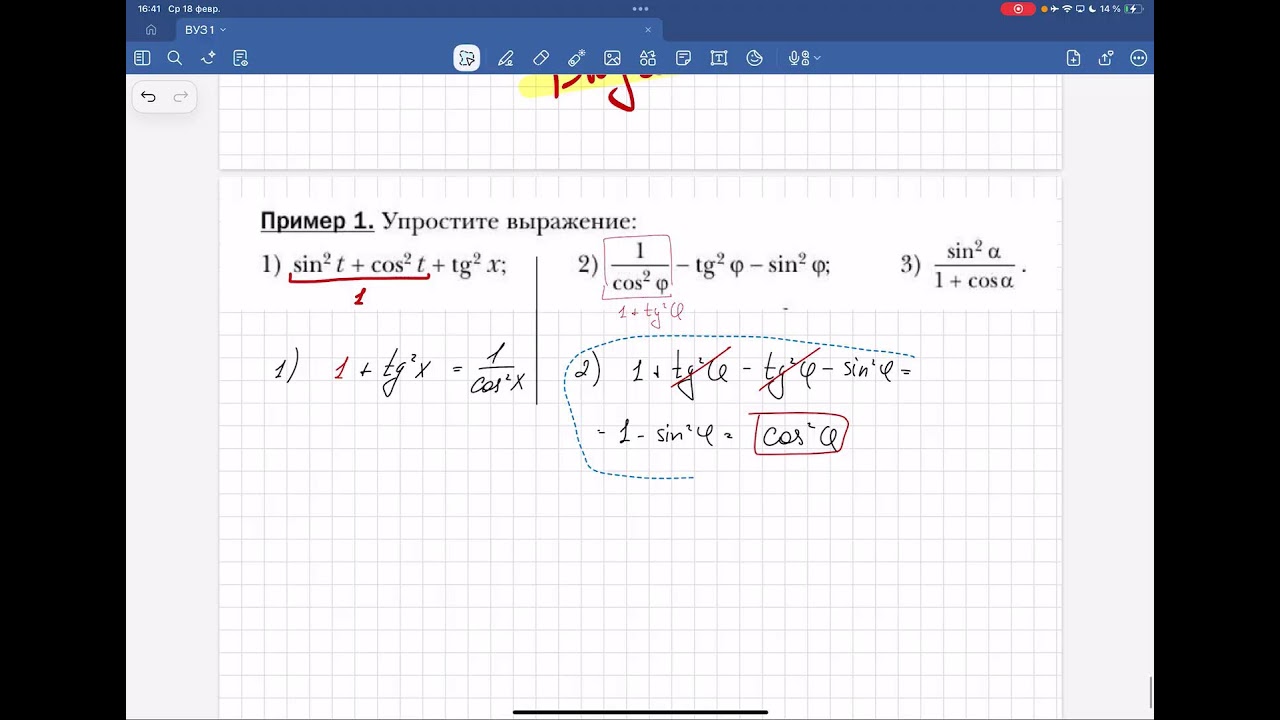 16:41 Ср 18 февр.
14 %
ВУЗ 1
Пример 1. Упростите выражение:
1) sin² t + cos² t + tg² x; 2) 1/cos² φ − tg² φ − sin² φ; 3) sin² α/1 + cos α.
1
1 + tg²φ
1) 1 + tg²x = 1/cos²x
2) 1 + tg²φ − tg²φ − sin²φ =
= 1 − sin²φ = cos²φ